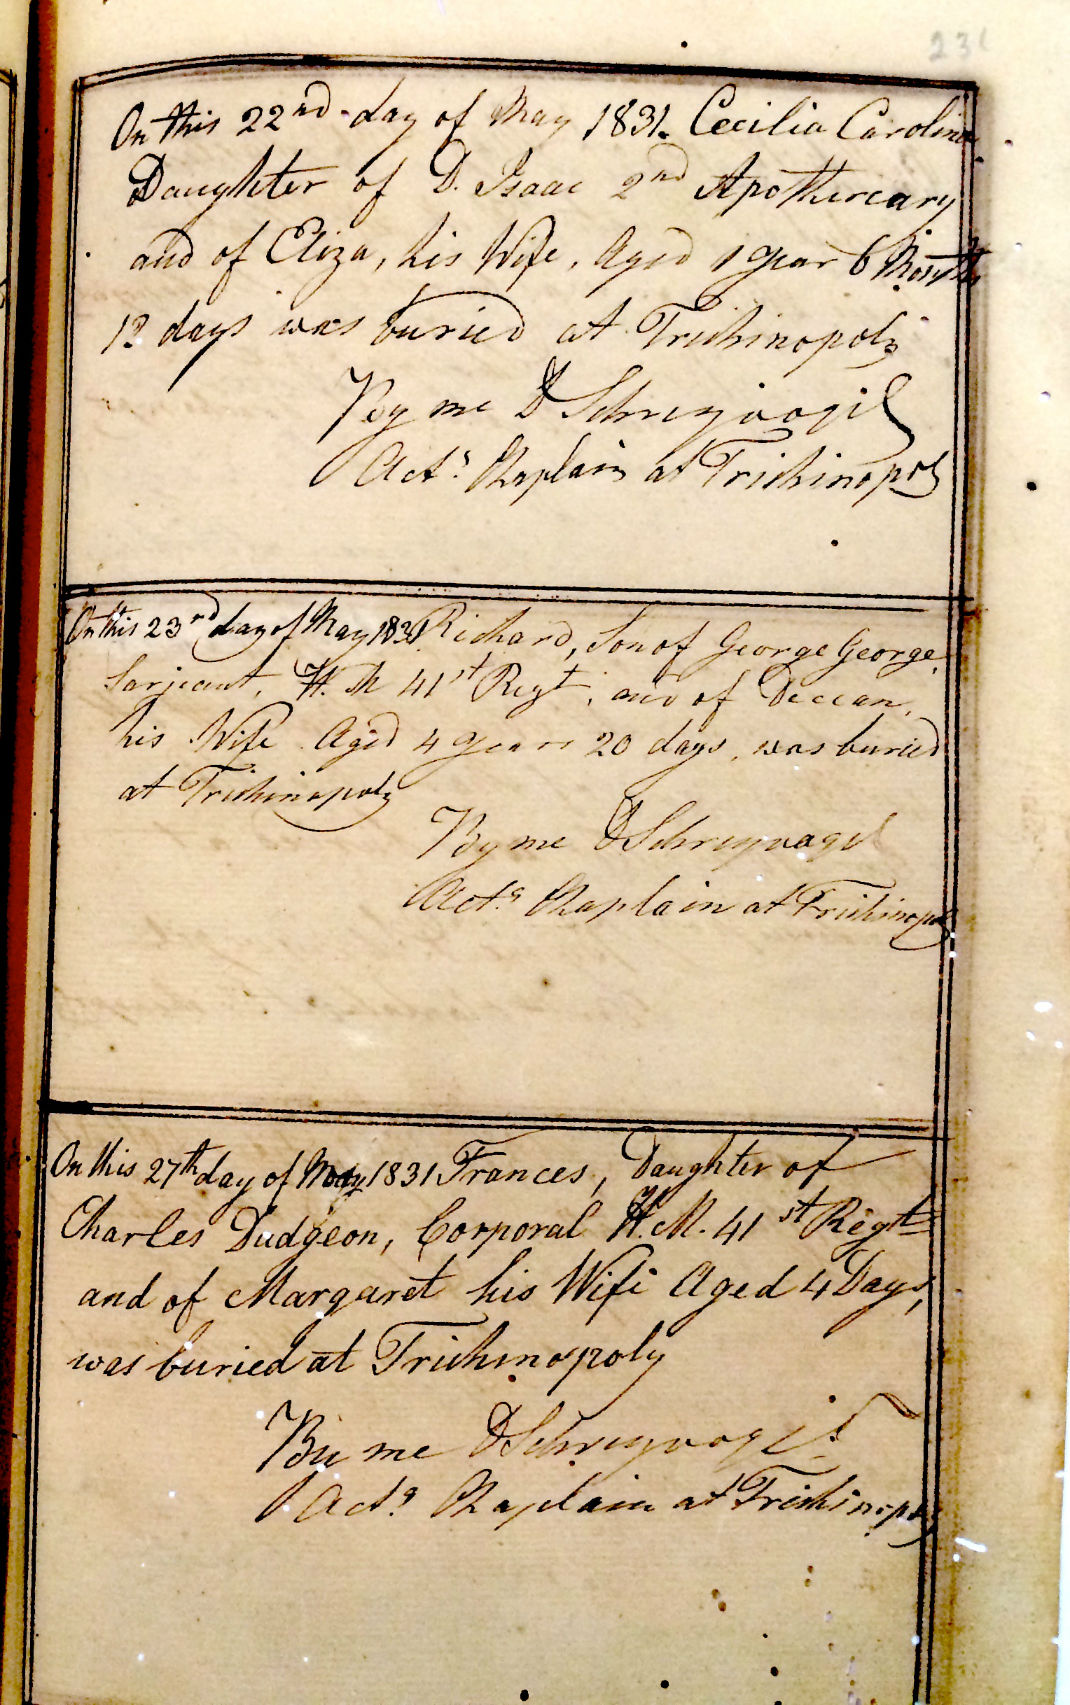 231
On this 22nd day of May 1831. Cecilia Caroline
Daughter of D. Isaac 2nd Apothecary
and of Eliza, his Wife, Aged 1 year 6 Months
12 days was buried at Trichinopoly
By me D Schreyvogel
Actg Chaplain at Trichinopoly
On this 23rd day of May 1831 Richard, Son of George George
Sarjeant, H. M 41st Regt, and of Deccan,
his Wife Aged 4 years 20 days, was buried
at Trichinopoly
By me D Schreyvogel
Actg Chaplain at Trichinopoly
On this 27th day of May 1831 Frances, Daughter of
Charles Dudgeon, Corporal H. M. 41st Regt
and of Margaret his Wife Aged 4 Days,
was buried at Trichinopoly
By me D Schreyvogel
Actg Chaplain at Trichinopoly